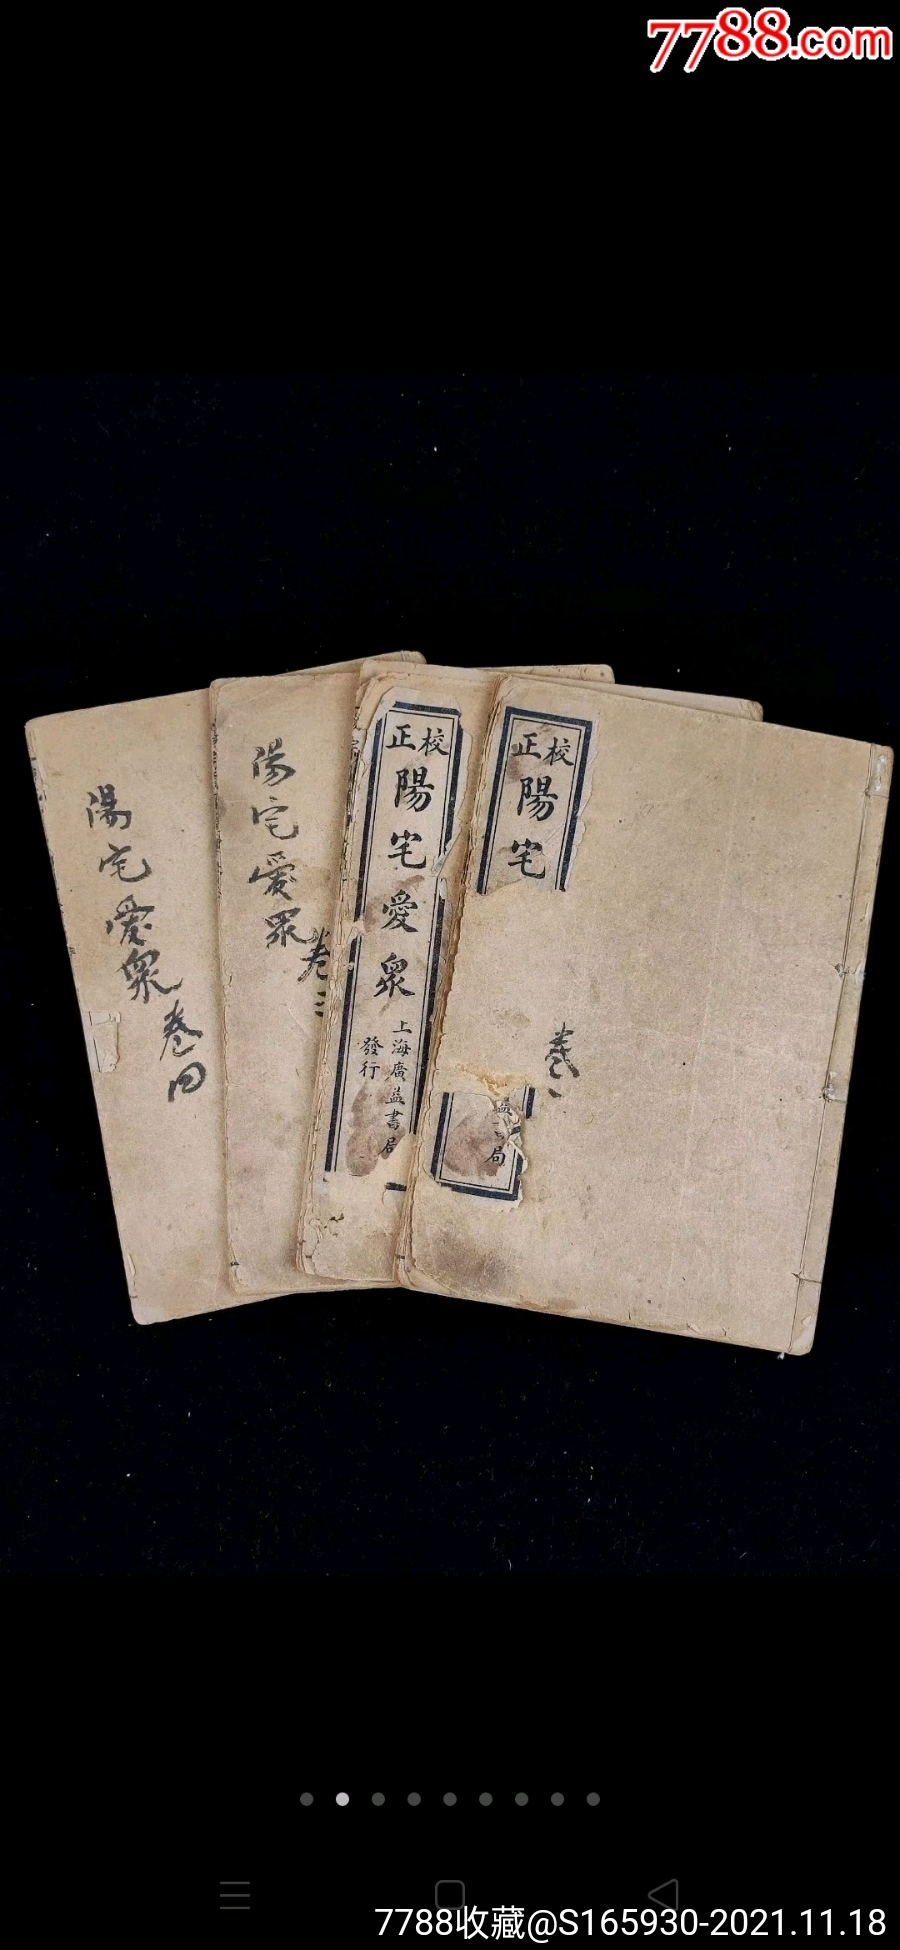 7788.com
陽宅愛眾
卷四
陽宅愛眾
卷三
校正
陽宅愛眾
上海廣益書局
發行
校正
陽宅
益書局
卷一
7788收藏@S165930-2021.11.18